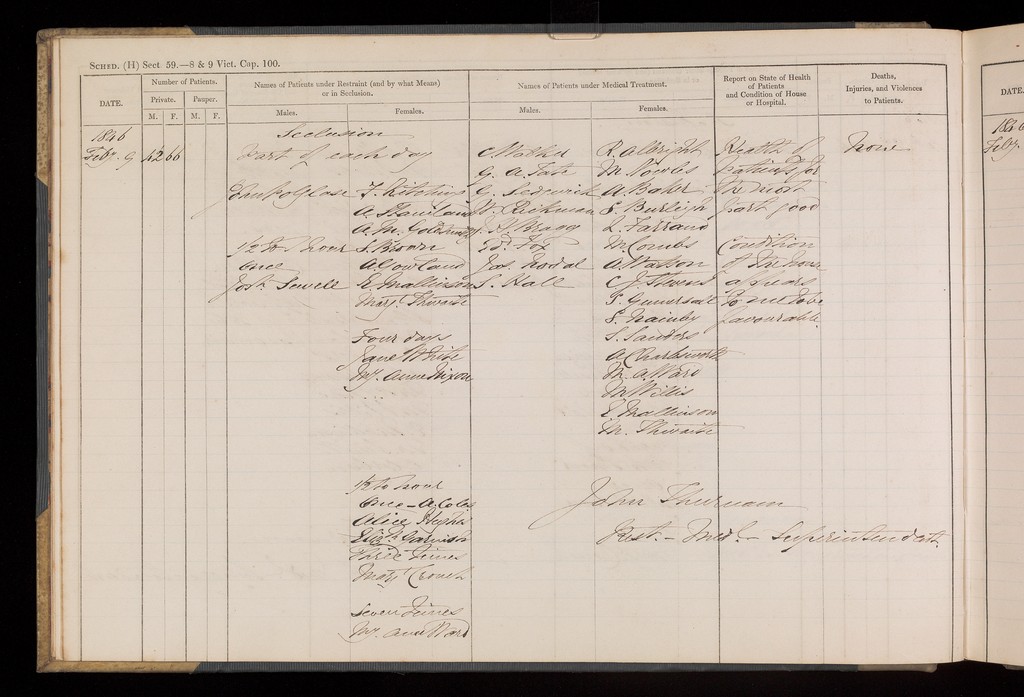 SCHED. (H) Sect 59.—8 & 9 Vict. Cap. 100.
DATE.
Number of Patients.
Private. Pauper.
M. F. M. F.
Names of Patients under Restraint (and by what Means)
or in Seclusion.
Males. Females.
Names of Patients under Medical Treatment.
Males. Females.
Report on State of Health
of Patients
and Condition of House
or Hospital.
Deaths,
Injuries, and Violences
to Patients.
1846
Feby. 9 42 66
Seclusion
Part of each day
John
½ to hour
once
Josh. Sewell
A. M.
S. Brown
A. Gowland
E. Mallinson
Mary Thwaite
Four days
Jane White
My. Anne Nixon
½ to hour
Once - A. Coles
Alice Hughes
Elizth.
Three Times
Mary Crouch
Seven Times
My. Ann Ward
G. A. Tate
G. Sedgwick
W. Rickman
J. H. Bragg
Ed. Fox
Jos.
S. Hall
R. Allright
M. Vowles
A. Baker
S. Burleigh
L. Farrand
M. Combs
A. Watson
C. J. Stevens
S. Nainby
S. Sanders
A. Charlesworth
M. A. Ward
M. Willis
E. Mallinson
M. Thwaite
Health of
Patients for
the most
part good
Condition
of the House
appears
to me to be
favourable.
None
John Thurnam
Rest. - Med. - Superintendent.
DATE.
1846
Feby.